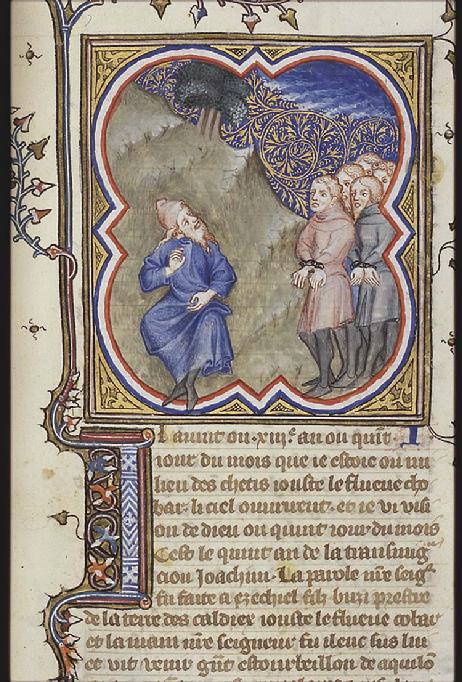 Il auint ou .xxx.e an ou quit
iour du mois que ie estoie ou mi
lieu des chetis iouste le flueue cho
bar. li ciel ouurirent. et ie vi visi
ons de dieu ou quint iour du mois
Cest le quint an de la transmig
cion Joachim. La parole nre seigr
fu faite a ezechiel filz buzi prestre
de la terre des caldiex iouste le flueue cobar
et la main nre seigneur fu ileuc sus lui
et vit venir gñt estourbeillon de aquilō